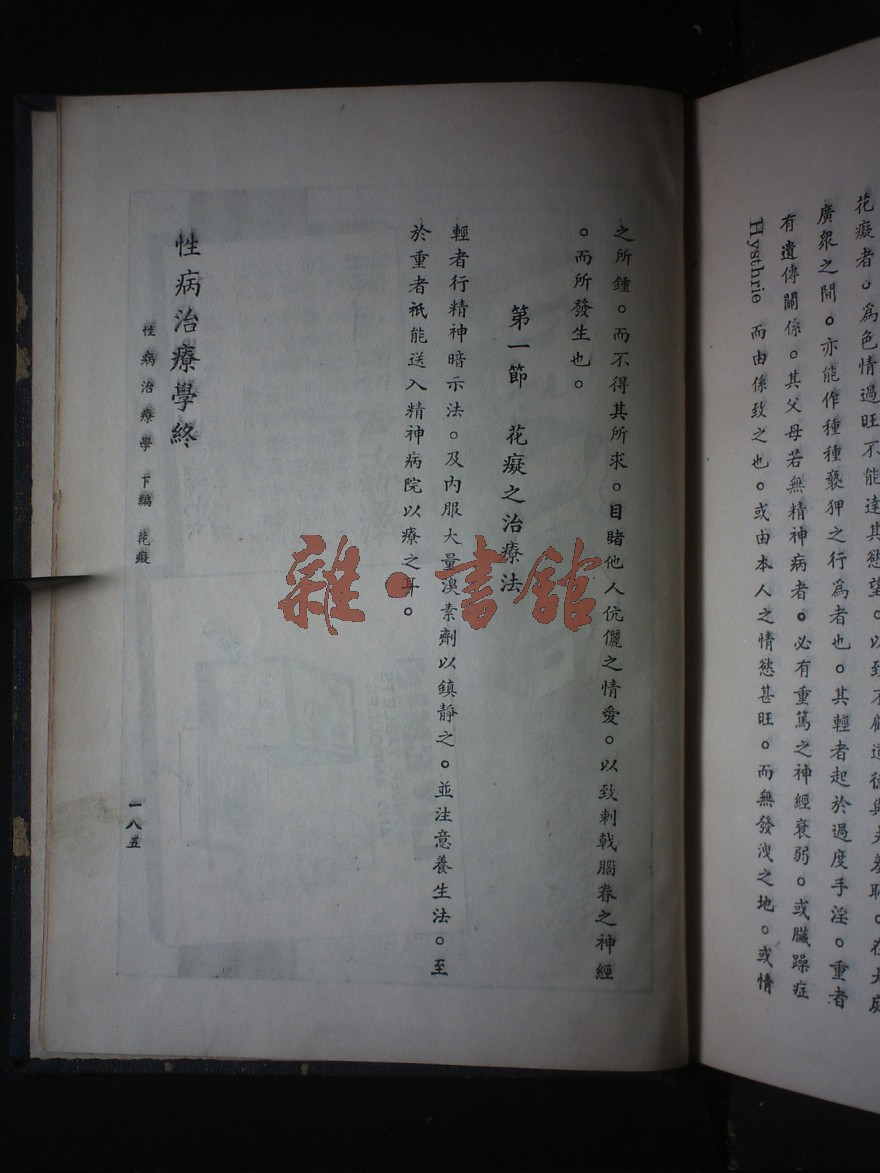 花癡者。爲色情過旺不能達其慾望。以致不顧道德與夫羞恥。在大庭
廣衆之間。亦能作種種褻狎之行爲者也。其輕者起於過度手淫。重者
有遺傳關係。其父母若無精神病者。必有重篤之神經衰弱。或臟躁症
Hysthrie 而由係致之也。或由本人之情慾甚旺。而無發洩之地。或情
之所鍾。而不得其所求。目睹他人伉儷之情愛。以致刺戟腦眷之神經
。而所發生也。
第一節 花癡之治療法
輕者行精神暗示法。及內服大量溴素劑以鎮靜之。並注意養生法。至
於重者祇能送入精神病院以療之耳。
性病治療學終
性病治療學 下編 花癡
一八五
雜·書館